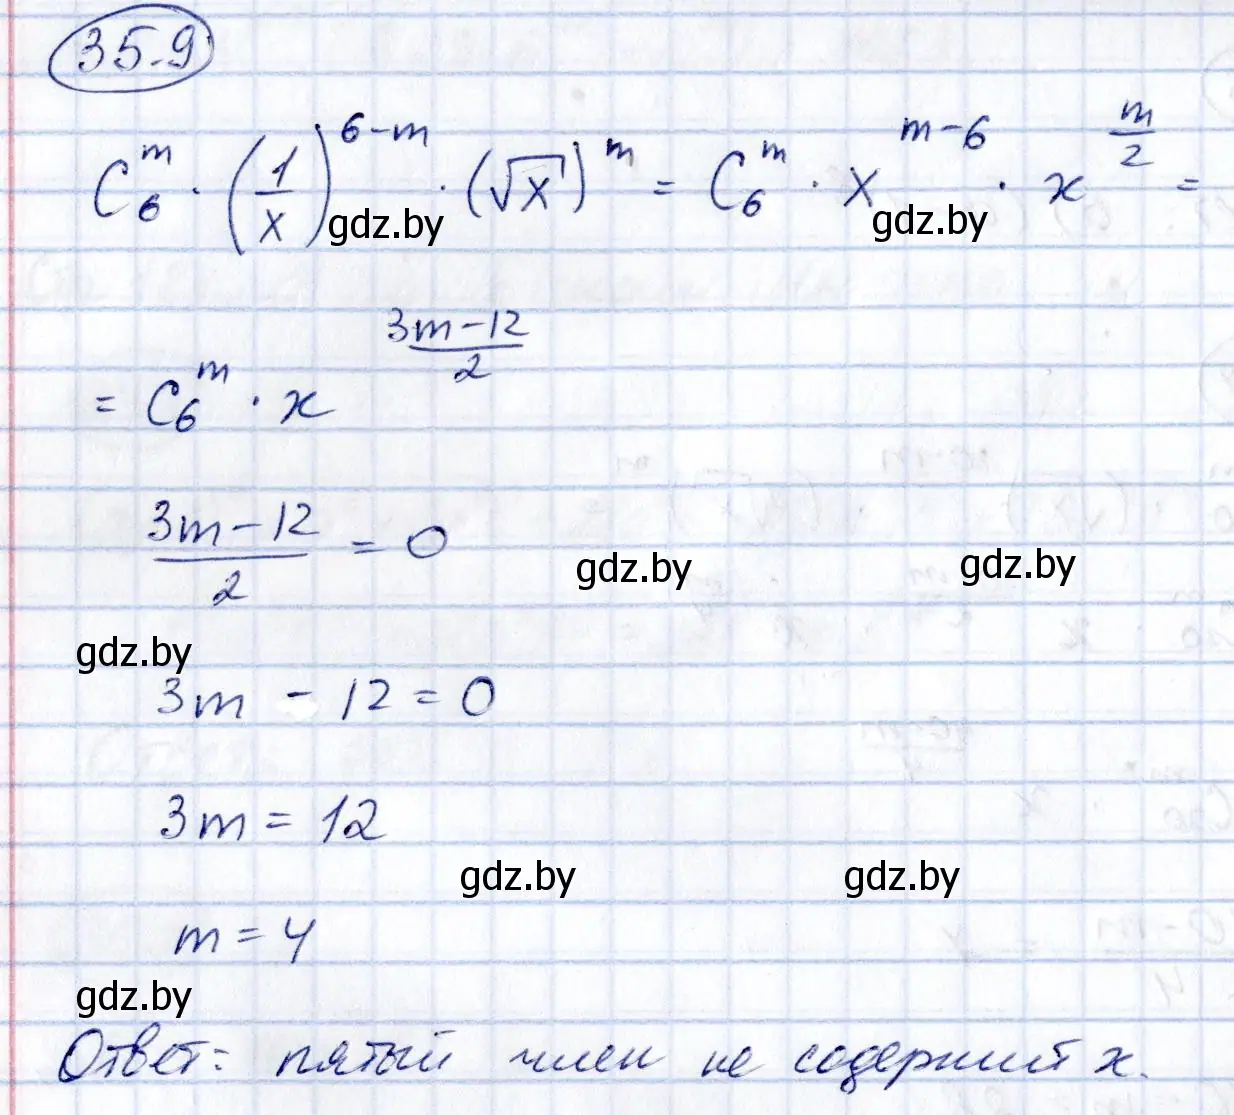 35.9
C₆ᵐ · (1/x)^(6-m) · (√x)^m = C₆ᵐ · x^(m-6) · x^(m/2) =
gdz.by gdz.by
= C₆ᵐ · x^((3m-12)/2)
(3m-12)/2 = 0
gdz.by gdz.by
gdz.by
3m - 12 = 0
3m = 12
gdz.by gdz.by
m = 4
gdz.by
Ответ: пятый член не содержит x.